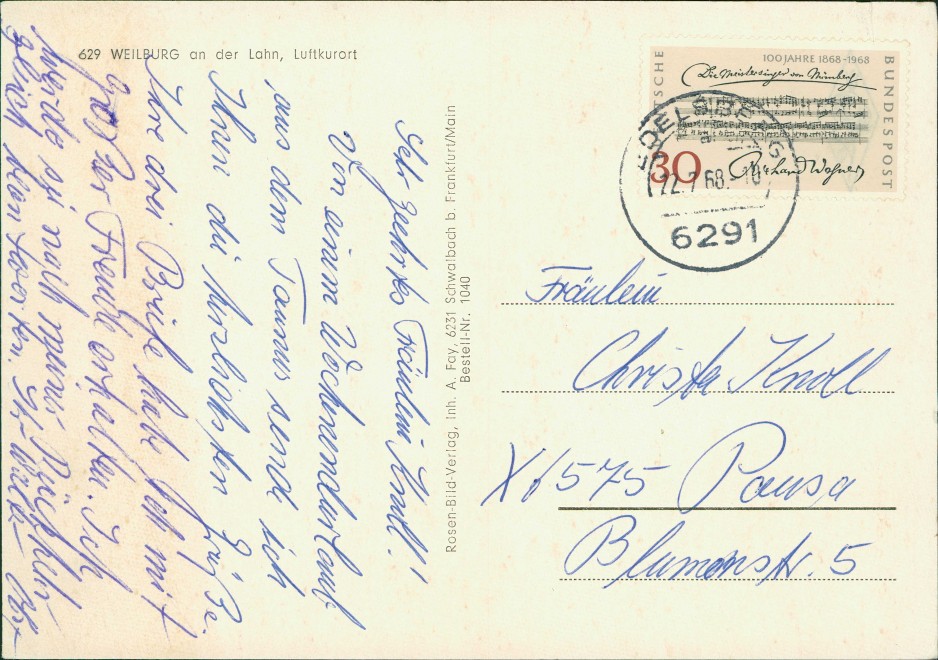 629 WEILBURG an der Lahn, Luftkurort
Sehr geehrtes Fräulein Knoll!
Von einem Wochenendurlaub
aus dem Taunus send ich
Ihnen die herzlichsten Grüße.
Ihre drei Briefe habe ich mit
großer Freude erhalten. Ich
werde sie nach meiner Rückkehr
gleich beantworten. Ihr
Rosen-Bild-Verlag, Inh. A. Fay, 6231 Schwalbach b. Frankfurt/Main
Bestell-Nr. 1040
DEUTSCHE BUNDESPOST
100 JAHRE 1868-1968
Die Meistersinger von Nürnberg
30
Richard Wagner
22.7.68.
6291
Fräulein
Christa Knoll
X 6575 Pausa
Blumenstr. 5